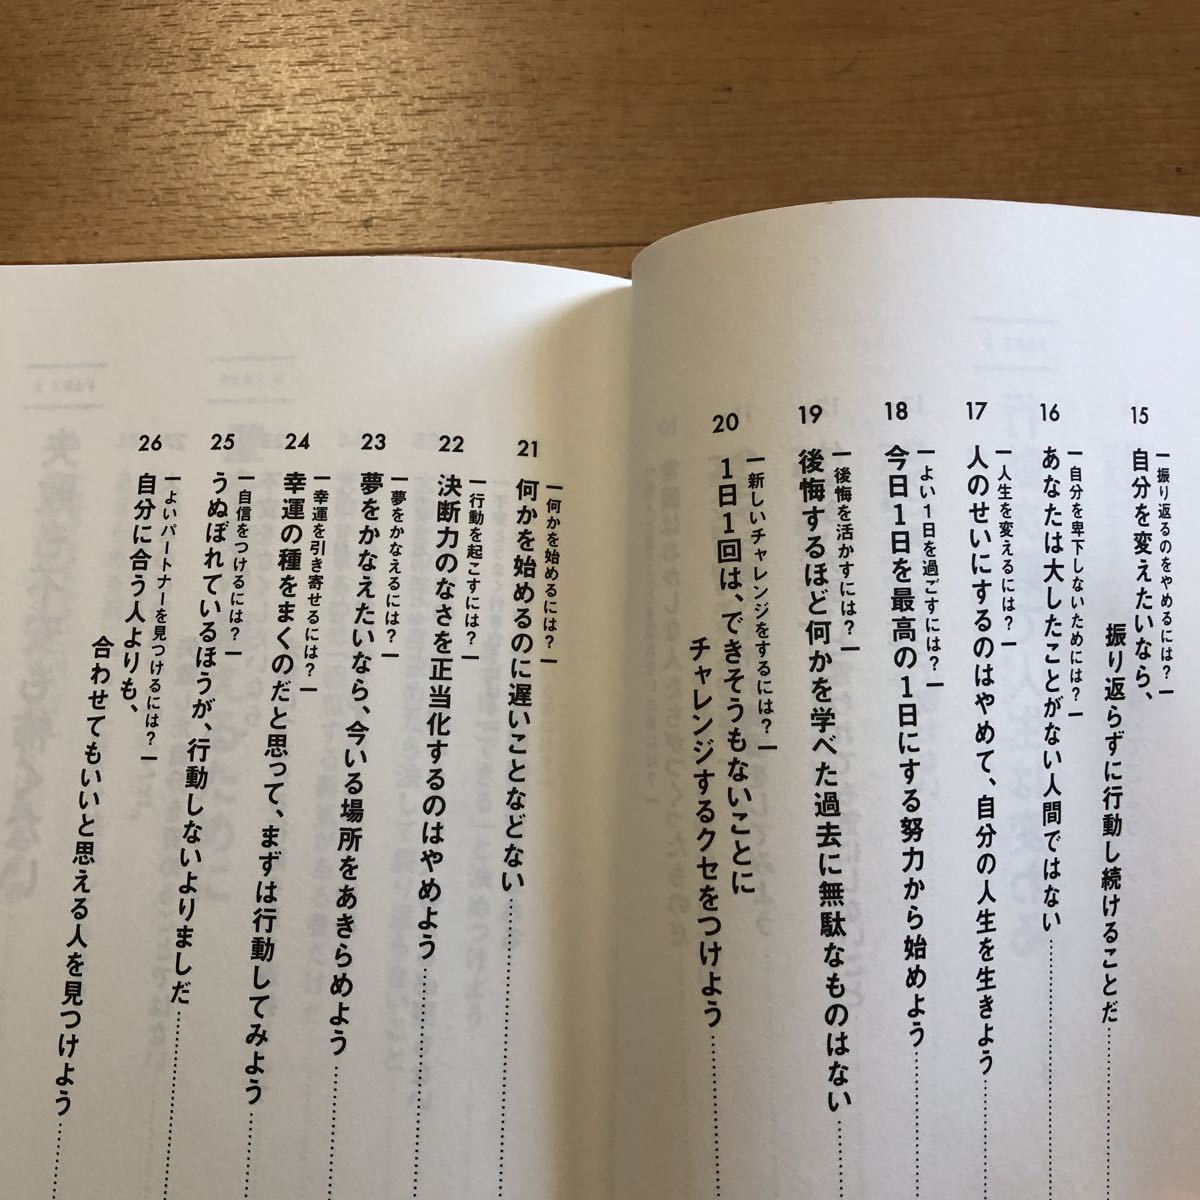 15
―振り返るのをやめるには？―
自分を変えたいなら、
振り返らずに行動し続けることだ
16
―自分を卑下しないためには？―
あなたは大したことがない人間ではない
17
―人生を変えるには？―
人のせいにするのはやめて、自分の人生を生きよう
18
―よい1日を過ごすには？―
今日1日を最高の1日にする努力から始めよう
19
―後悔を活かすには？―
後悔するほど何かを学べた過去に無駄なものはない
20
―新しいチャレンジをするには？―
1日1回は、できそうもないことに
チャレンジするクセをつけよう
21
―何かを始めるには？―
何かを始めるのに遅いことなどない
22
―行動を起こすには？―
決断力のなさを正当化するのはやめよう
23
―夢をかなえるには？―
夢をかなえたいなら、今いる場所をあきらめよう
24
―幸運を引き寄せるには？―
幸運の種をまくのだと思って、まずは行動してみよう
25
―自信をつけるには？―
うぬぼれているほうが、行動しないよりましだ
26
―よいパートナーを見つけるには？―
自分に合う人よりも、
合わせてもいいと思える人を見つけよう